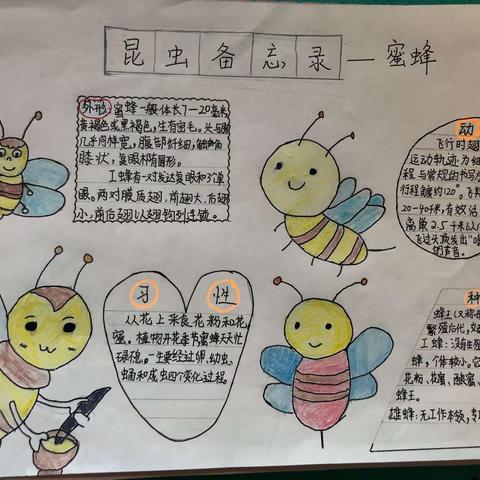 昆虫备忘录—蜜蜂
外形:蜜蜂一般体长7—20毫米
黄褐色或黑褐色,生有密毛。头与胸
几乎同样宽,腹部纤细,触角角
膝状,复眼椭圆形。
工蜂有一对发达复眼和3个单
眼。两对膜质翅,前翅大,后翅
小,前后翅以翅钩列连锁。
习性
从花上采食花粉和花
蜜。植物开花季节蜜蜂天天忙
碌不息。一生要经过卵、幼虫、
蛹和成虫四个变化过程。
动
飞行时翅
运动轨迹为细
程与常规的书写
行程幅约120°。飞
20-40千米,有效活
离巢2.5千米以
飞过头顶发出"嗡
的声音。
种
蜂王(又称
繁殖后代,
工蜂:没有生
蜂,个体较小。它
花粉、花蜜、酿蜜、
蜂王。
雄蜂:无工作本领,专